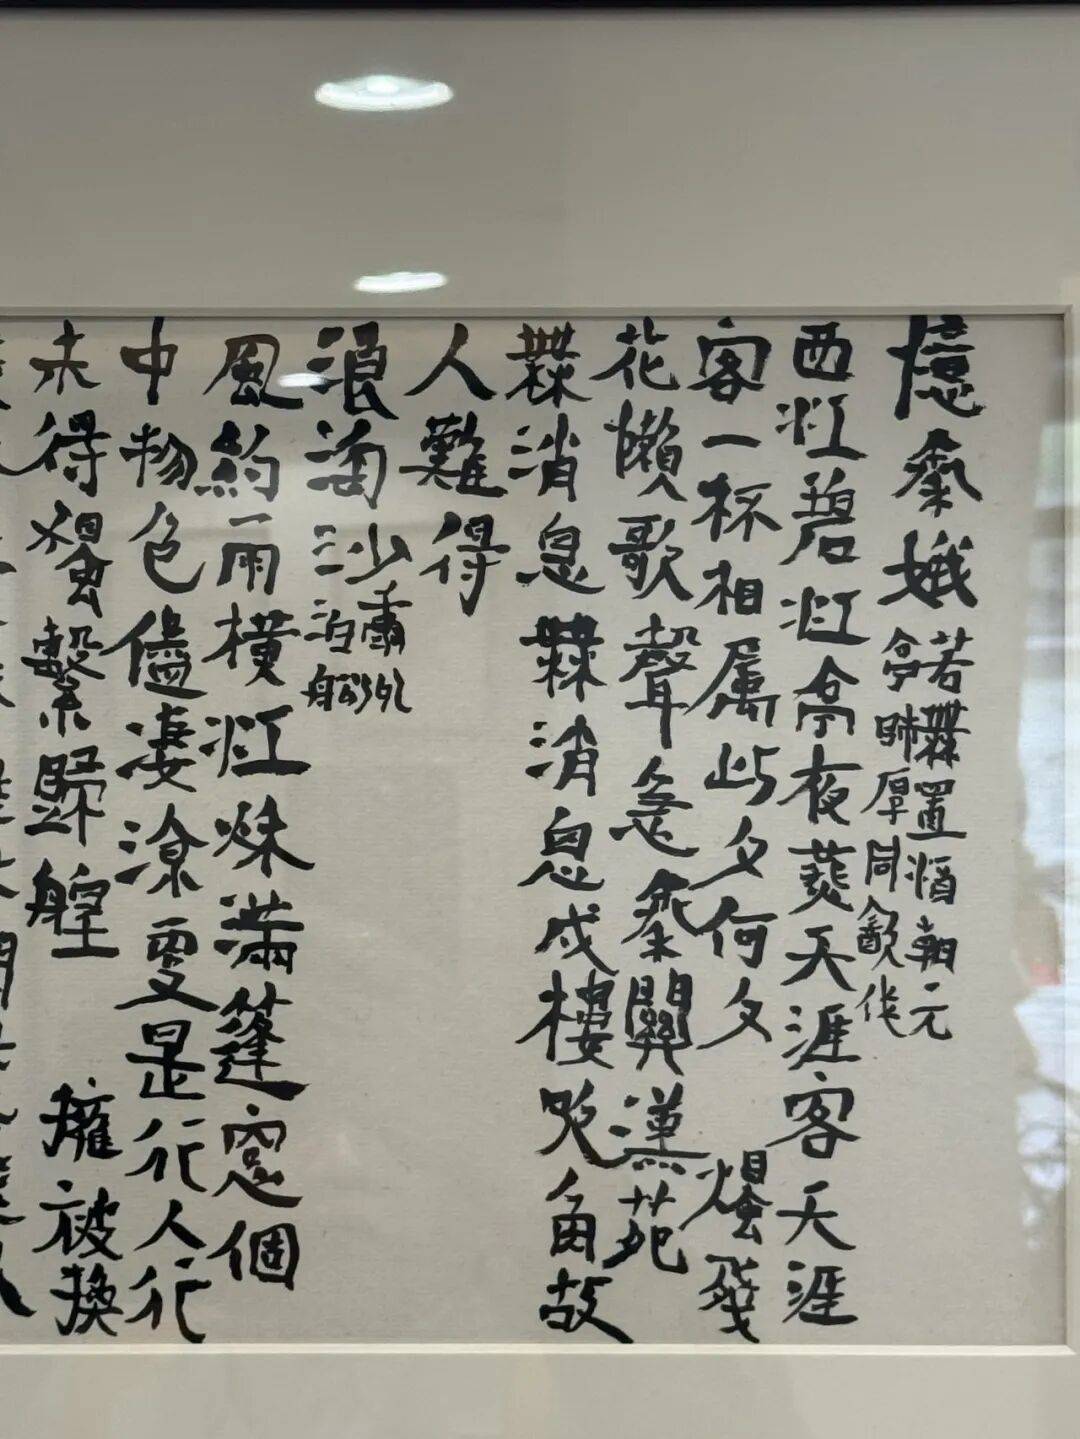 憶秦娥 若無置酒朝元
亭師厚同飲作
西江碧江亭夜燕天涯客天涯
客一杯相屬此夕何夕 燭殘
花懶歌聲急秦關漢苑
無消息無消息戍樓吹角故
人難得
浪淘沙
泊船
風約雨橫江秋滿篷窗個
中物色儘淒涼更是行人行
未得獨繫歸艎 擁被換